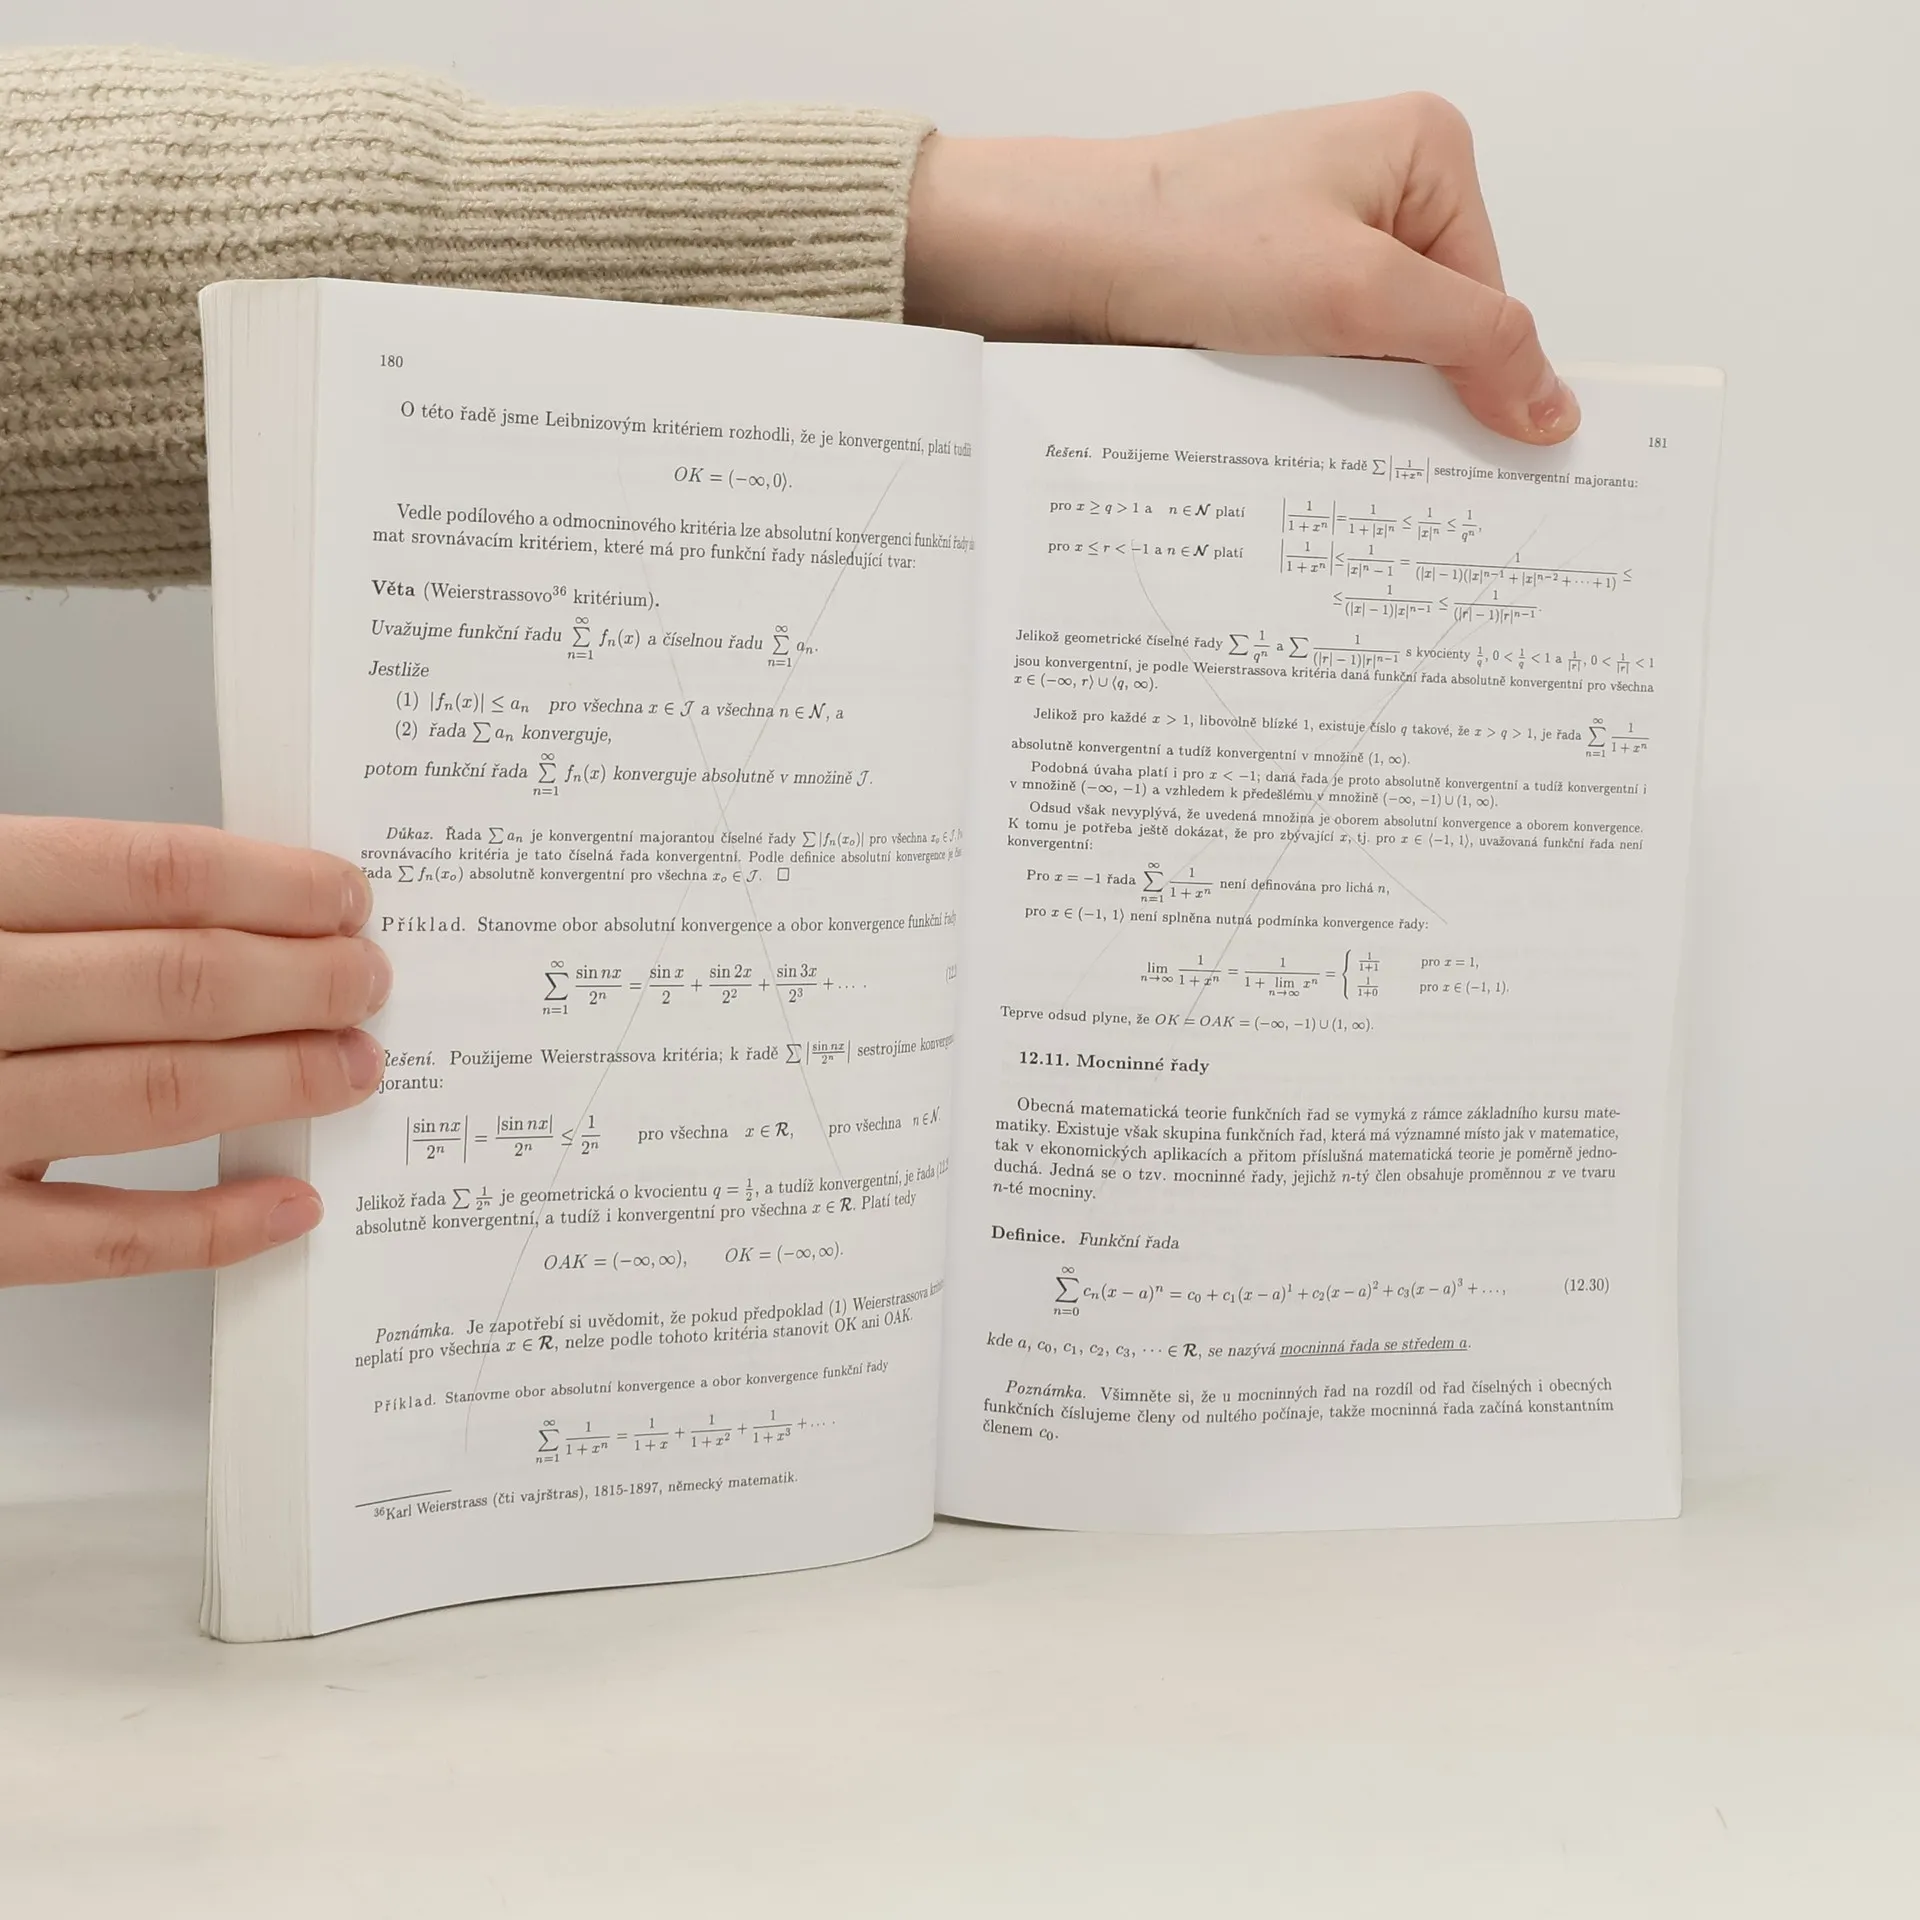 180
O této řadě jsme Leibnizovým kritériem rozhodli, že je konvergentní, platí tudíž
OK = (−∞, 0⟩.
Vedle podílového a odmocninového kritéria lze absolutní konvergenci funkční řady
mat srovnávacím kritériem, které má pro funkční řady následující tvar:
Věta (Weierstrassovo³⁶ kritérium).
Uvažujme funkční řadu ∑_{n=1}^{∞} fₙ(x) a číselnou řadu ∑_{n=1}^{∞} aₙ.
Jestliže
(1) |fₙ(x)| ≤ aₙ pro všechna x ∈ 𝒥 a všechna n ∈ 𝒩, a
(2) řada ∑ aₙ konverguje,
potom funkční řada ∑_{n=1}^{∞} fₙ(x) konverguje absolutně v množině 𝒥.
Důkaz. Řada ∑ aₙ je konvergentní majorantou číselné řady ∑ |fₙ(xₒ)| pro všechna xₒ ∈ 𝒥.
srovnávacího kritéria je tato číselná řada konvergentní. Podle definice absolutní konvergence je
řada ∑ fₙ(xₒ) absolutně konvergentní pro všechna xₒ ∈ 𝒥. □
Příklad. Stanovme obor absolutní konvergence a obor konvergence funkční řady
∑_{n=1}^{∞} sin nx / 2ⁿ = sin x / 2 + sin 2x / 2² + sin 3x / 2³ + … .
Řešení. Použijeme Weierstrassova kritéria; k řadě ∑ |sin nx / 2ⁿ| sestrojíme
jorantu:
|sin nx / 2ⁿ| = |sin nx| / 2ⁿ ≤ 1 / 2ⁿ pro všechna x ∈ ℛ, pro všechna n ∈ 𝒩
Jelikož řada ∑ 1/2ⁿ je geometrická o kvocientu q = 1/2, a tudíž konvergentní, je řada
absolutně konvergentní, a tudíž i konvergentní pro všechna x ∈ ℛ. Platí tedy
OAK = (−∞, ∞), OK = (−∞, ∞).
Poznámka. Je zapotřebí si uvědomit, že pokud předpoklad (1) Weierstrassova
neplatí pro všechna x ∈ ℛ, nelze podle tohoto kritéria stanovit OK ani OAK.
Příklad. Stanovme obor absolutní konvergence a obor konvergence funkční řady
∑_{n=1}^{∞} 1/(1 + xⁿ) = 1/(1 + x) + 1/(1 + x²) + 1/(1 + x³) + … .
³⁶Karl Weierstrass (čti vajrštras), 1815-1897, německý matematik.
181
Řešení. Použijeme Weierstrassova kritéria; k řadě ∑ |1/(1+xⁿ)| sestrojíme konvergentní majorantu:
pro x ≥ q > 1 a n ∈ 𝒩 platí |1/(1 + xⁿ)| = 1/(1 + |x|ⁿ) ≤ 1/|x|ⁿ ≤ 1/qⁿ,
pro x ≤ r < −1 a n ∈ 𝒩 platí |1/(1 + xⁿ)| ≤ 1/(|x|ⁿ − 1) = 1/((|x| − 1)(|x|ⁿ⁻¹ + |x|ⁿ⁻² + ⋯ + 1)) ≤
≤ 1/((|x| − 1)|x|ⁿ⁻¹) ≤ 1/((|r| − 1)|r|ⁿ⁻¹).
Jelikož geometrické číselné řady ∑ 1/qⁿ a ∑ 1/((|r| − 1)|r|ⁿ⁻¹) s kvocienty 1/q, 0 < 1/q < 1 a 1/|r|, 0 < 1/|r| < 1
jsou konvergentní, je podle Weierstrassova kritéria daná funkční řada absolutně konvergentní pro všechna
x ∈ (−∞, r⟩ ∪ ⟨q, ∞).
Jelikož pro každé x > 1, libovolně blízké 1, existuje číslo q takové, že x > q > 1, je řada ∑_{n=1}^{∞} 1/(1 + xⁿ)
absolutně konvergentní a tudíž konvergentní v množině (1, ∞).
Podobná úvaha platí i pro x < −1; daná řada je proto absolutně konvergentní a tudíž konvergentní i
v množině (−∞, −1) a vzhledem k předešlému v množině (−∞, −1) ∪ (1, ∞).
Odsud však nevyplývá, že uvedená množina je oborem absolutní konvergence a oborem konvergence.
K tomu je potřeba ještě dokázat, že pro zbývající x, tj. pro x ∈ ⟨−1, 1⟩, uvažovaná funkční řada není
konvergentní:
Pro x = −1 řada ∑_{n=1}^{∞} 1/(1 + xⁿ) není definována pro lichá n,
pro x ∈ (−1, 1⟩ není splněna nutná podmínka konvergence řady:
lim_{n→∞} 1/(1 + xⁿ) = 1/(1 + lim_{n→∞} xⁿ) = { 1/(1+1) pro x = 1,
1/(1+0) pro x ∈ (−1, 1).
Teprve odsud plyne, že OK = OAK = (−∞, −1) ∪ (1, ∞).
12.11. Mocninné řady
Obecná matematická teorie funkčních řad se vymyká z rámce základního kursu mate-
matiky. Existuje však skupina funkčních řad, která má významné místo jak v matematice,
tak v ekonomických aplikacích a přitom příslušná matematická teorie je poměrně jedno-
duchá. Jedná se o tzv. mocninné řady, jejichž n-tý člen obsahuje proměnnou x ve tvaru
n-té mocniny.
Definice. Funkční řada
∑_{n=0}^{∞} cₙ(x − a)ⁿ = c₀ + c₁(x − a)¹ + c₂(x − a)² + c₃(x − a)³ + … , (12.30)
kde a, c₀, c₁, c₂, c₃, ⋯ ∈ ℛ, se nazývá mocninná řada se středem a.
Poznámka. Všimněte si, že u mocninných řad na rozdíl od řad číselných i obecných
funkčních číslujeme členy od nultého počínaje, takže mocninná řada začíná konstantním
členem c₀.